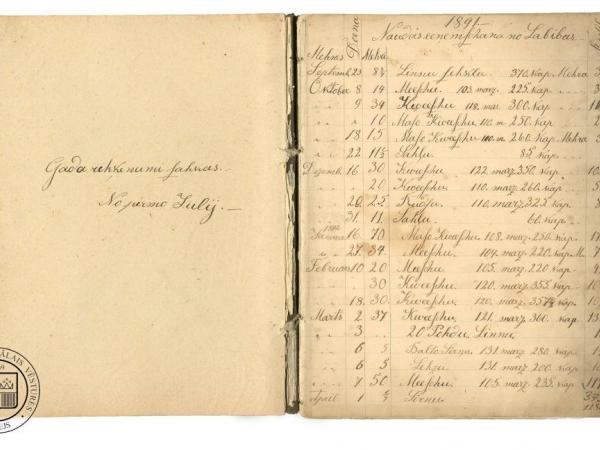 Gada rehkenumi sahkas
No pirmo Julij.
1891.
Naudas eenemschana no Labibas
Mehnes Deena Mehra
Septemb 23 8½ Linnu sehklu 370. Kap. Mehra
Oktober 8 14 Meeschu 103. marz. 225. Kap.
" 9 34 Kweeschu 118. mar. 300. Kap.
" " 10 Maso Kweeschu 110. m 250. Kap
" 18 15 Maso Kweeschu 110. m 260. Kap. Mehra
" 22 11½ Sahlu 85. Kap
Dezemb. 16 30 Kweeschu 122 marz 350. Kap.
" 20 Kweeschu 110. marz 260. Kap.
" 20 25 Rudsu 110. marz 325. Kap
31. 11 Sahlu 60. Kap.
1892
Januar 16. 70 Maso Kweeschu 108. marz. 250. Kap.
" 27. 34 Meeschu 104. marz 220. Kap. M
Februar 10 20 Meeschu 105. marz 220 Kap.
30 Kweeschu 120. marz 355. Kap
18. 30. Kweeschu 120. marz 357½ Kap
Marts 2 37 Kweeschu 121. marz 360. Kap.
" 3 20 Pohdu Linnu
" 6 5 Balto 131. marz 280. Kap
" 6 5 131. marz 200. Kap
" 7 50 Meeschu 105. marz 235. Kap
April 1